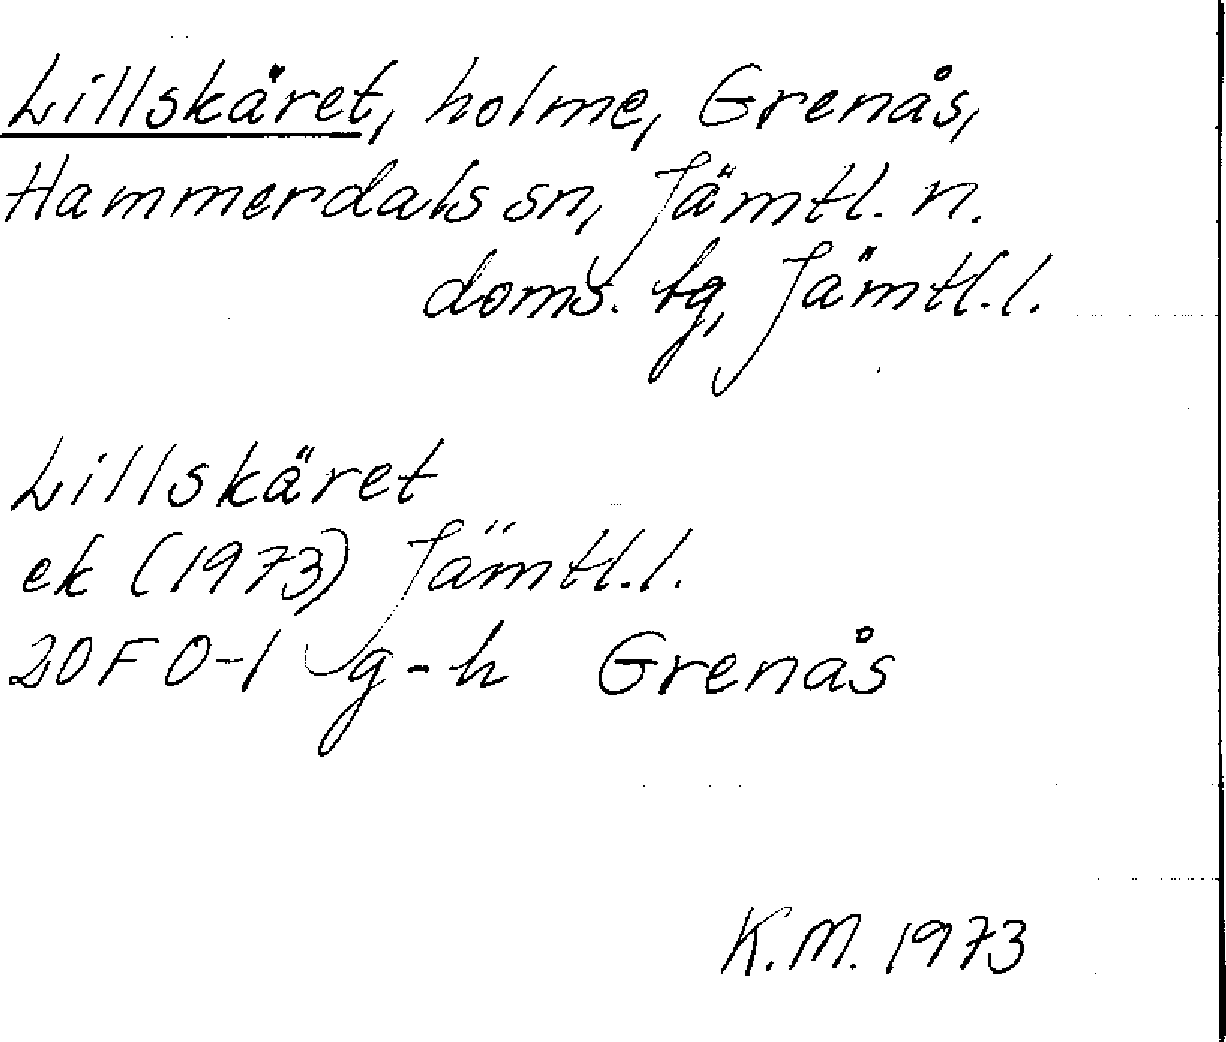 Lillskäret, holme, Grenås,
Hammerdals sn, Jämtl. n.
doms. tg, Jämtl. l.
Lillskäret
ek (1973) Jämtl. l.
20F 0-1 g-h Grenås
K.M. 1973